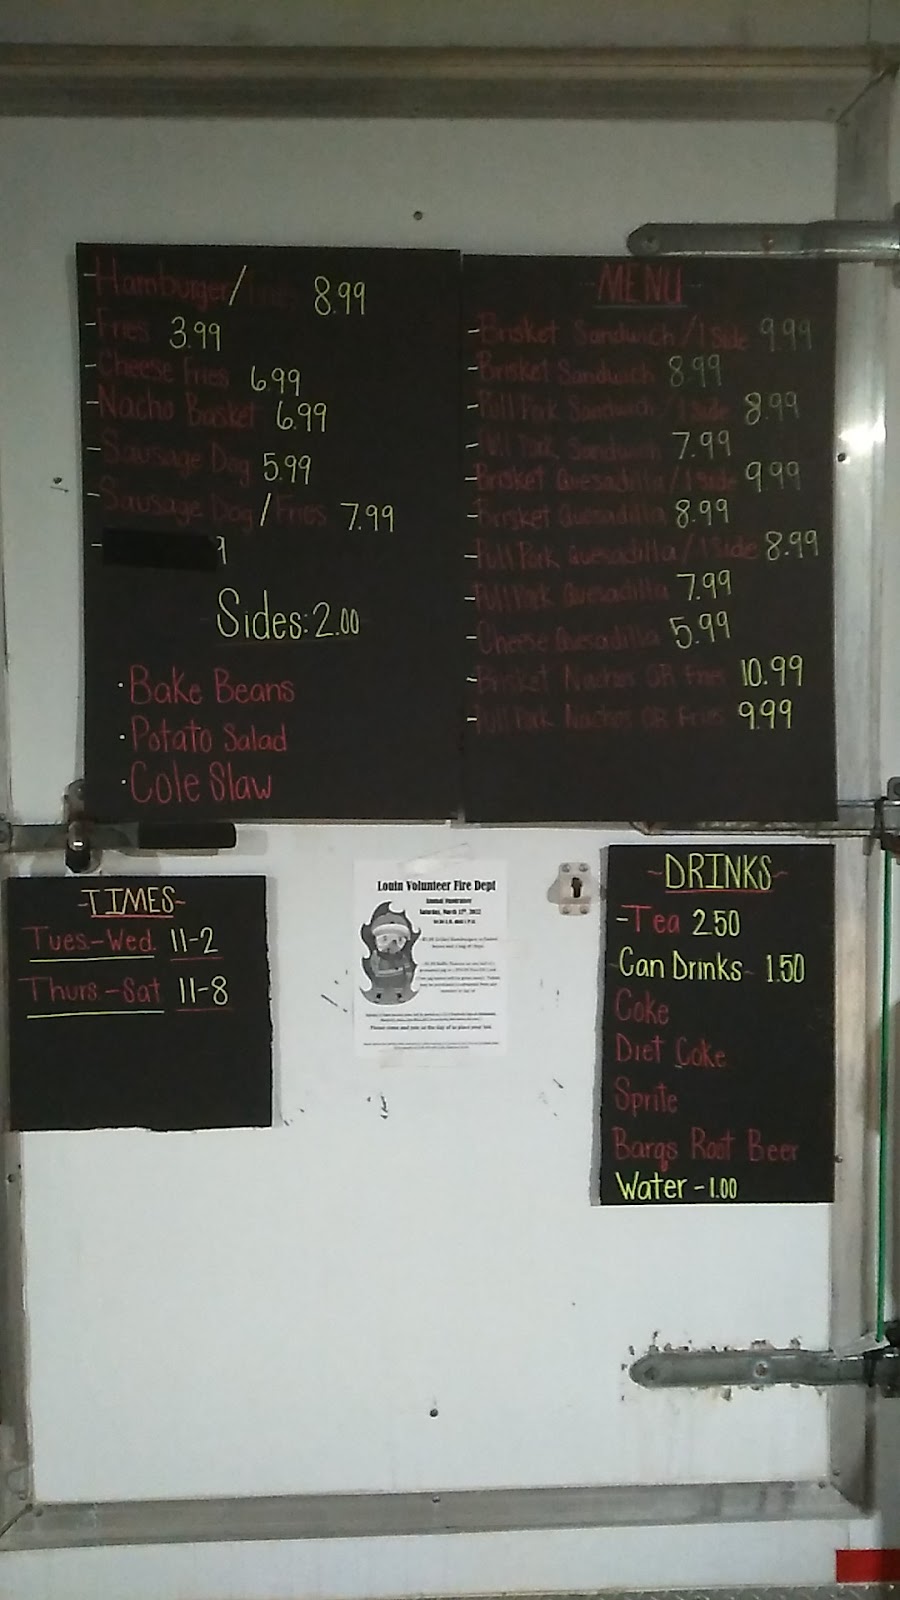 -Hamburger/Fries 8.99
-Fries 3.99
-Cheese Fries 6.99
-Nacho Basket 6.99
-Sausage Dog 5.99
-Sausage Dog/Fries 7.99
- 9
Sides: 2.00
· Bake Beans
· Potato Salad
· Cole Slaw
- MENU -
-Brisket Sandwich/1 Side 9.99
-Brisket Sandwich 8.99
-Pull Pork Sandwich/1 Side 8.99
-Pull Pork Sandwich 7.99
-Brisket Quesadilla/1 Side 9.99
-Brisket Quesadilla 8.99
-Pull Pork Quesadilla/1 Side 8.99
-Pull Pork Quesadilla 7.99
-Cheese Quesadilla 5.99
-Brisket Nachos OR Fries 10.99
-Pull Pork Nachos OR Fries 9.99
-TIMES-
Tues.-Wed. 11-2
Thurs.-Sat 11-8
Louin Volunteer Fire Dept
Annual Fundraiser
Saturday, March 12th, 2022
Please come and join us the day of to place your bid.
~DRINKS~
-Tea 2.50
Can Drinks - 1.50
Coke
Diet Coke
Sprite
Barqs Root Beer
Water - 1.00